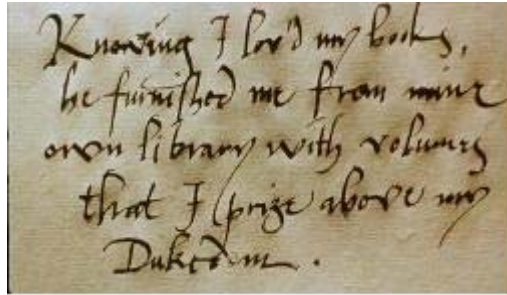 Knowing I lov'd my books,
he furnished me from mine
own library with volumes
that I prize above my
Dukedom.